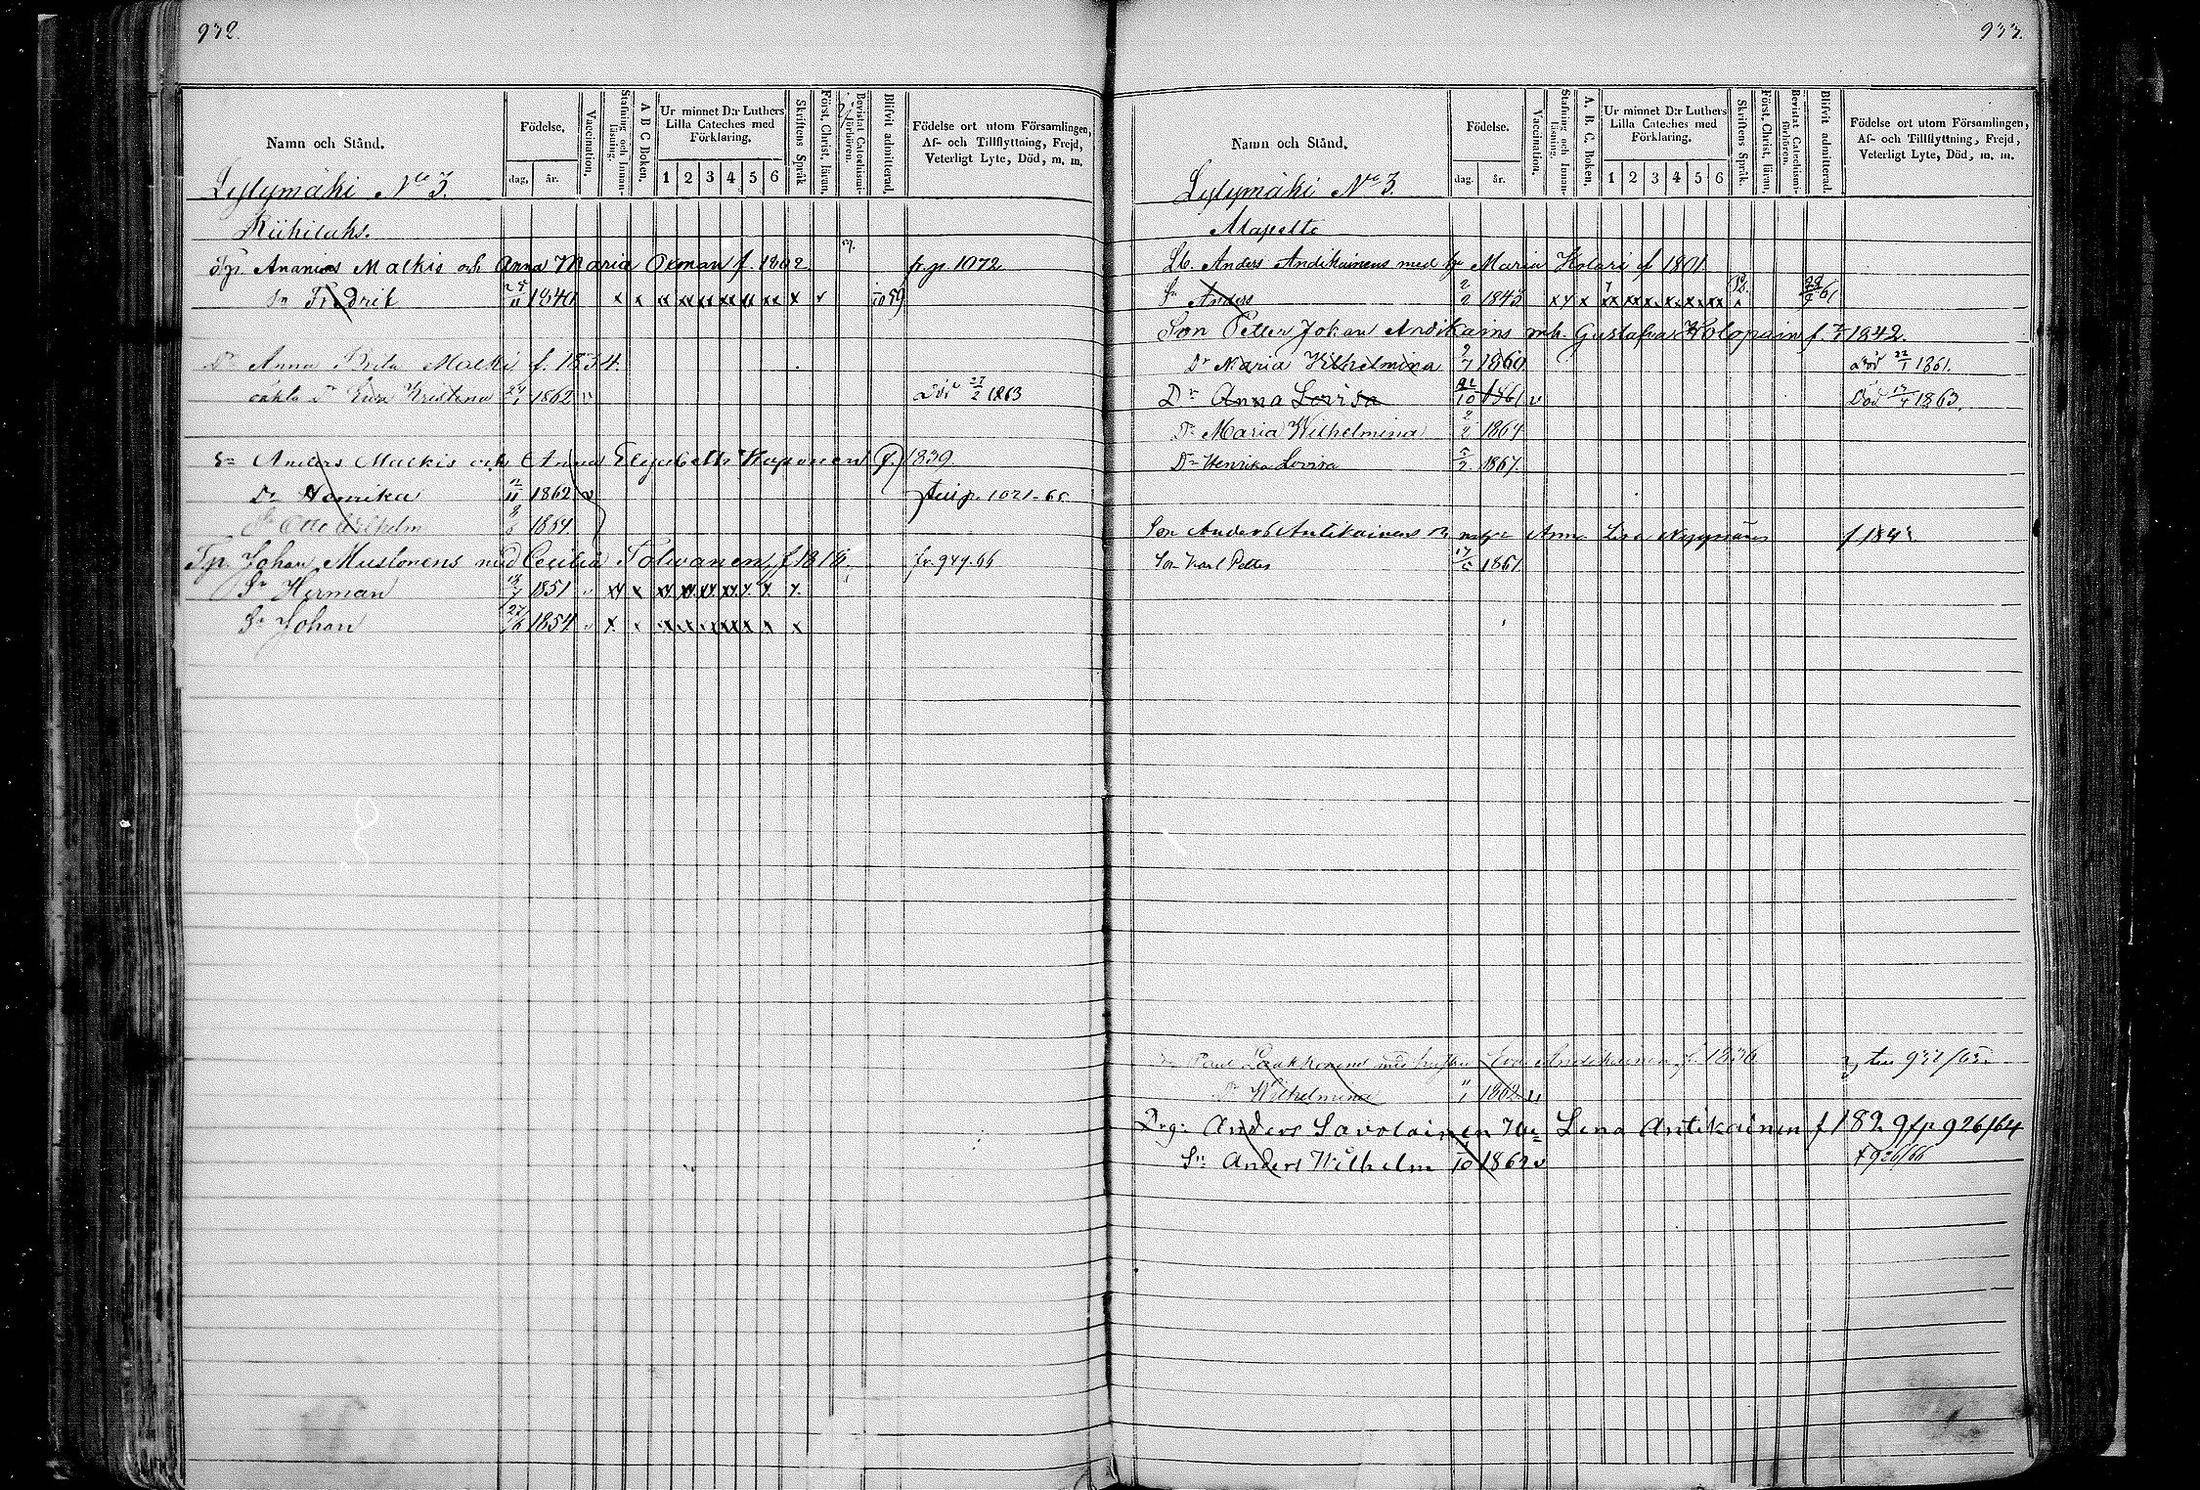 932.
Namn och Stånd.
Födelse,
dag, år.
Vaccination,
Stafning och Innanläsning.
A B C Boken,
Ur minnet D:r Luthers Lilla Cateches med Förklaring.
1 2 3 4 5 6
Skriftens Språk
Först. Christ. läran,
Bevistat Catechismiförhören.
Blifvit admitterad,
Födelse ort utom Församlingen, Af- och Tillflyttning, Frejd, Veterligt Lyte, Död, m. m.
Lylymäki No 3.
Riihilahs.
Ananias Malkis och Anna Maria Oxman f. 1802. fr. p. 1072
Sn Fredrik 25/11 1840 x x x xx xx xx xx xx x v 59
Dr Anna Brita Malki f. 1834.
oäkta Dr Eva Kristina 24/1 1862 v Död 27/2 1863
Sn Anders Malkis och Anna Elisabeth Kaponen f. 1839.
Dr Henrika 12/11 1862 v p. 1021-65
Sn Otto Wilhelm 8/6 1864
Johan Mustonens med Cecilia Tolwanen f. 1816. fr. 949.66
Sn Herman 13/7 1851 v xx x xx xx xx xx x x x
Sn Johan 27/6 1854 v x x x x x x x x x
933.
Namn och Stånd.
Födelse.
dag. år.
Vaccination,
Stafning och Innanläsning.
A. B. C. Boken,
Ur minnet D:r Luthers Lilla Cateches med Förklaring.
1 2 3 4 5 6
Skriftens Språk.
Först. Christ. läran,
Bevistat Catechismiförhören.
Blifvit admitterad.
Födelse ort utom Församlingen, Af- och Tillflyttning, Frejd, Veterligt Lyte, Död, m. m.
Lylymäki No 3.
Mapelto
Lb. Anders Andikainens med h Maria Kolari f 1801
Sn Anders 2/2 1843 xx x xx xx x x xx xx 61
Son Petter Johan Andikains mh. Gustafva Holopain f. 1842.
Dr Maria Wilhelmina 9/7 1860 Död 22/1 1861.
Dr Anna Lovisa 1861 v Död 1863.
Dr Maria Wilhelmina 2/2 1864
Dr Henrika Lovisa 5/2 1867.
Son Anders Antikainens Anna Lisa f 184
Son Karl Petter 17/5 1861
Paul Laakkonens med hustru Eva Andikainen f. 1836 937/65
Dr Wilhelmina 1862 v
Anders Savolainen Hu Lena Antikainen f 1829 fp 926/64
Sn Anders Wilhelm 1862 v 926/66